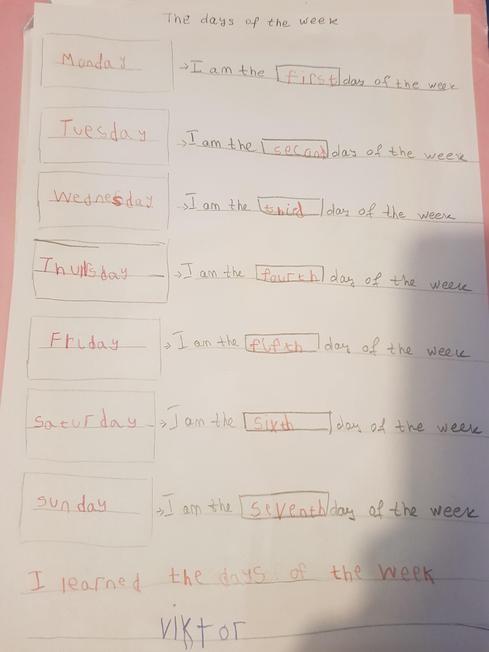 The days of the week
Monday → I am the first day of the week
Tuesday → I am the second day of the week
Wednesday → I am the third day of the week
Thursday → I am the fourth day of the week
Friday → I am the fifth day of the week
Saturday → I am the sixth day of the week
sunday → I am the seventh day of the week
I learned the days of the week
viktor